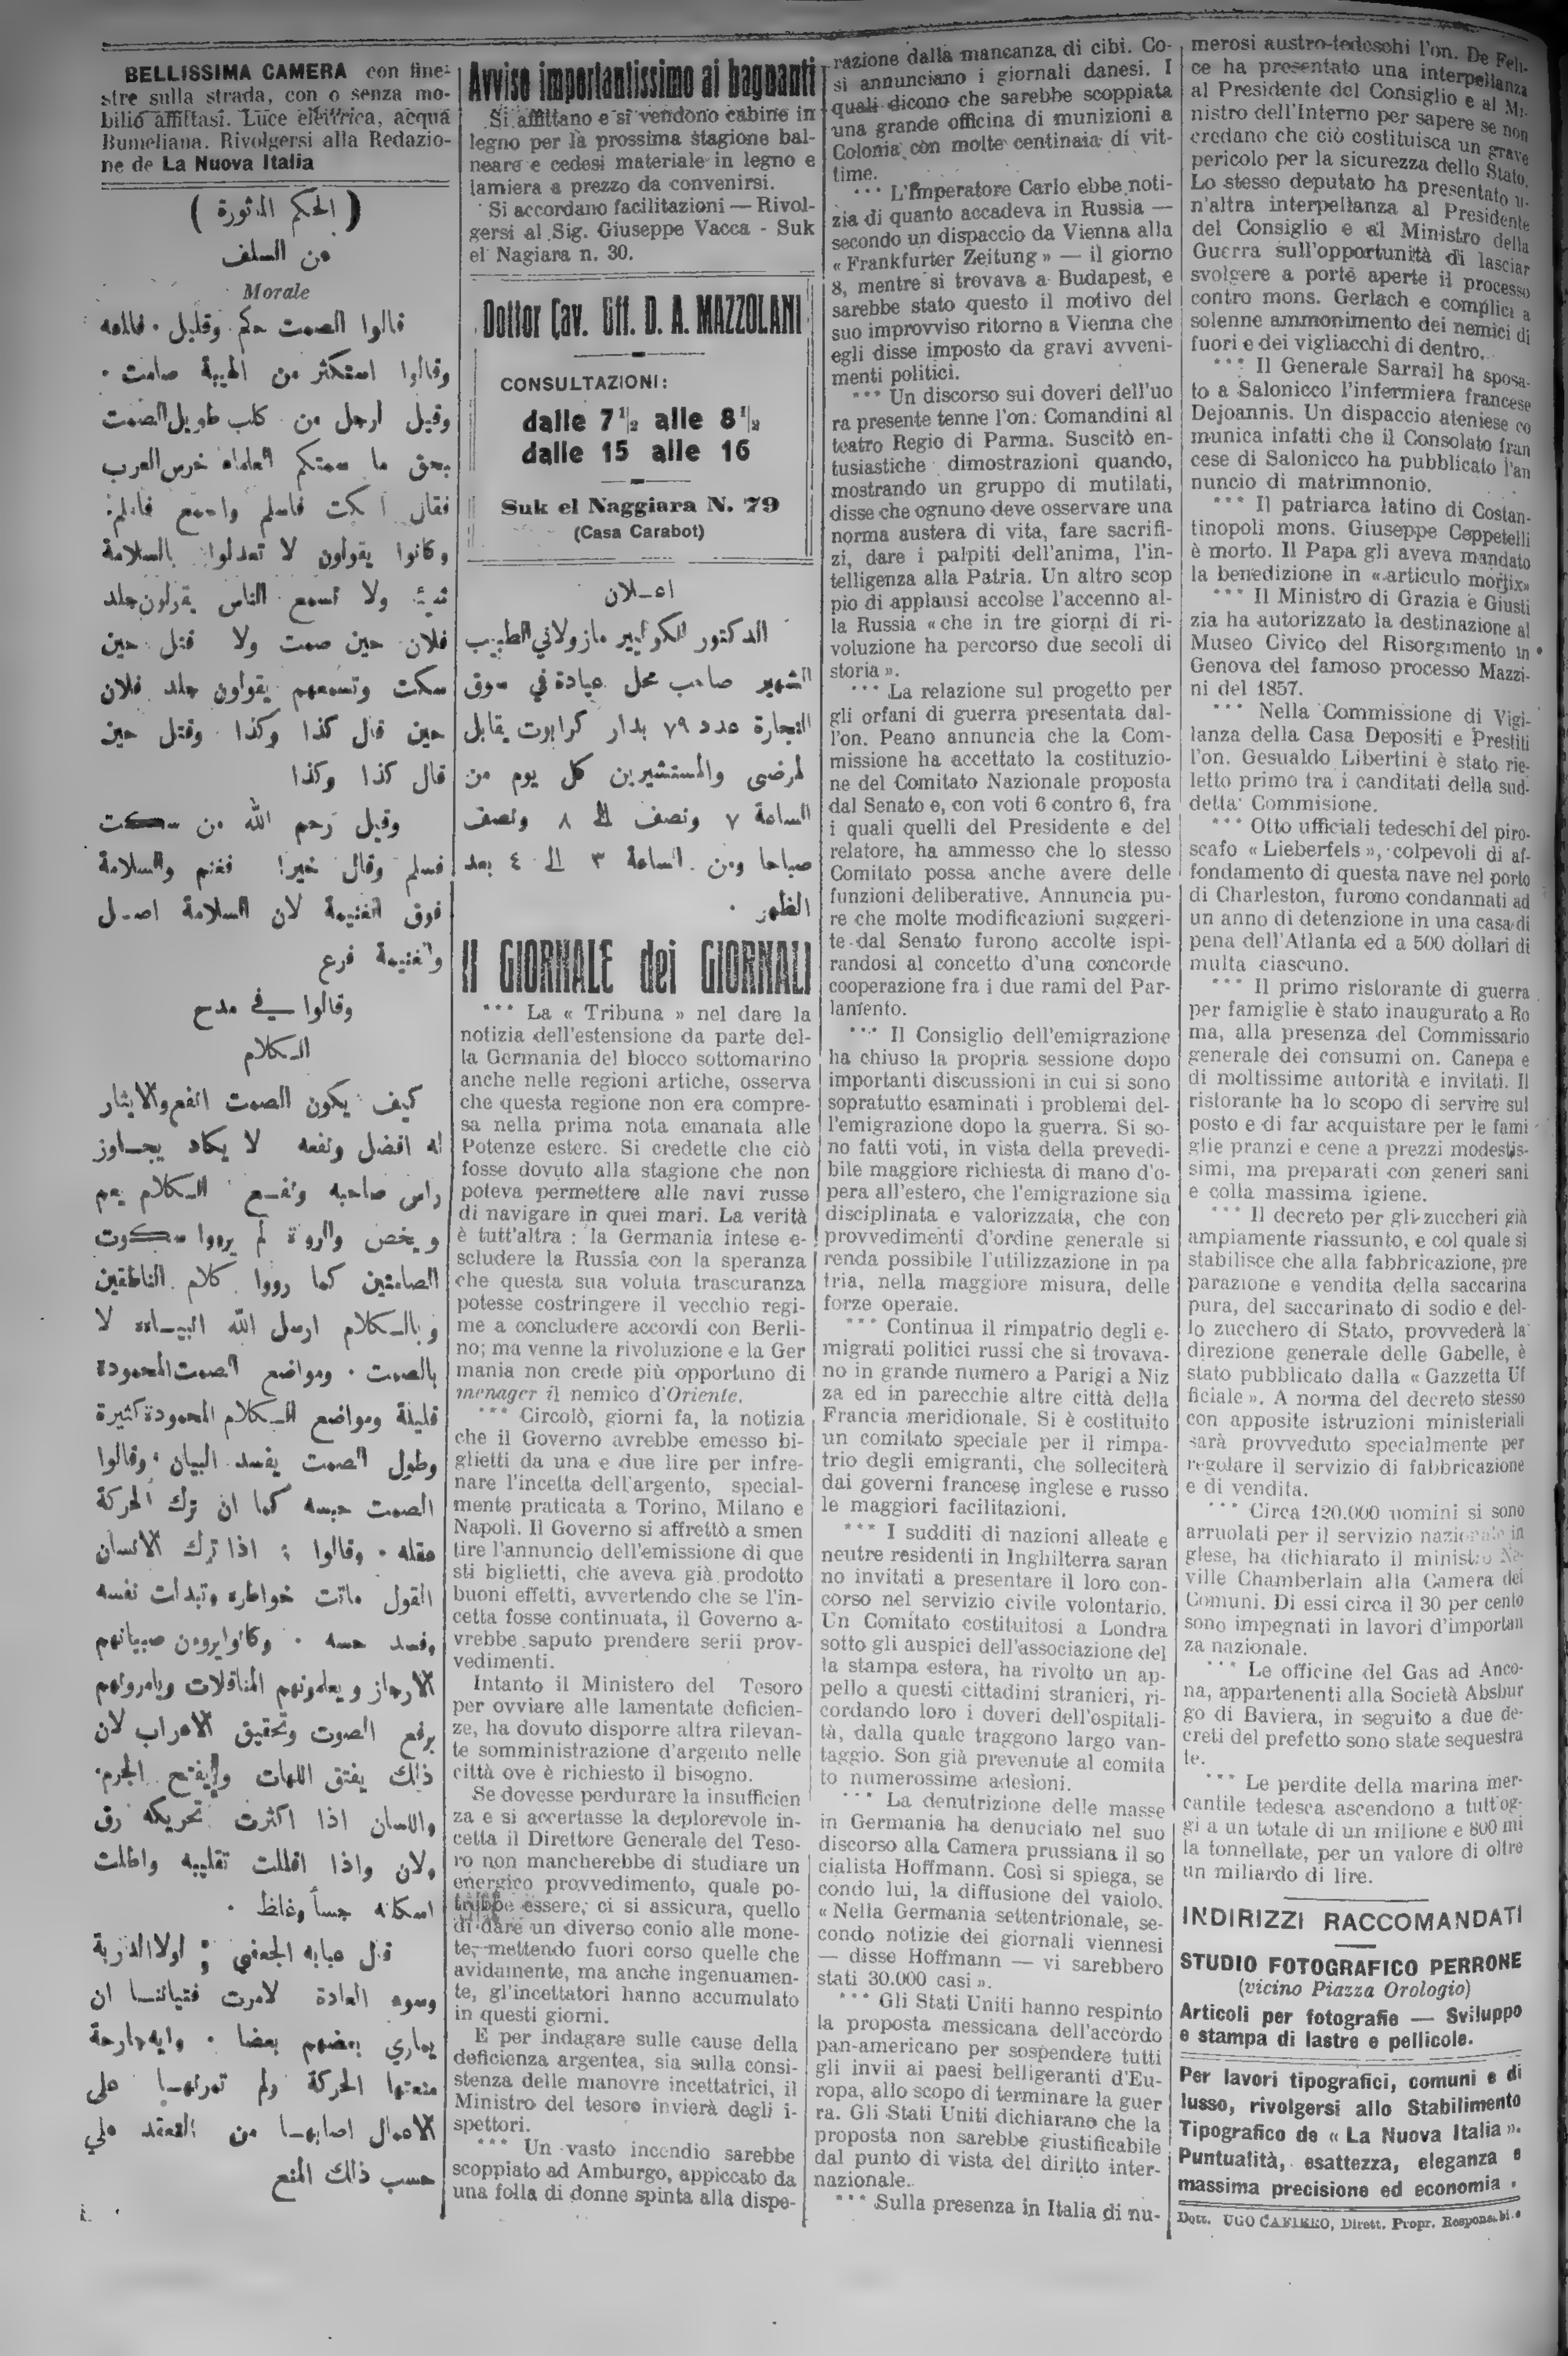 BELLISSIMA CAMERA con fine-
stre sulla strada, con o senza mo-
bilio affittasi. Luce elettrica, acqua
Bumeliana. Rivolgersi alla Redazio-
ne de La Nuova Italia
( الحكم المأثورة )
من السلف
Morale
قالوا الصمت حكم وقليل فاعله
وقالوا استكثر من الهيبة صامت .
وقيل لرجل من كلب طويل الصمت
بحق ما سمتكم العلماء خرس العرب
فقال اسكت فاسلم واسمع فاعلم
وكانوا يقولون لا تعدلوا بالسلامة
شيئا ولا تسمع الناس يقولون جلد
فلان حين صمت ولا قتل حين
سكت وتسمعهم يقولون جلد فلان
حين قال كذا وكذا وقتل حين
قال كذا وكذا
وقيل رحم الله من سكت
فسلم وقال خيرا فغنم والسلامة
فوق الغنيمة لان السلامة اصل
والغنيمة فرع
وقالوا في مدح
الكلام
كيف يكون الصمت انفع والايثار
له افضل ونفعه لا يكاد يجاوز
راس صاحبه ونفع الكلام يعم
ويخص والرواة لم يرووا سكوت
الصامتين كما رووا كلام الناطقين
وبالكلام ارسل الله انبياءه لا
بالصمت . ومواضع الصمت المحمودة
قليلة ومواضع الكلام المحمودة كثيرة
وطول الصمت يفسد البيان . وقالوا
الصمت حبسه كما ان ترك الحركة
عقله . وقالوا : اذا ترك الانسان
القول ماتت خواطره وتبدأت نفسه
وفسد حسه . وكانوا يروون صبيانهم
الارجاز ويعلمونهم المناقلات ويامرونهم
برفع الصوت وتحقيق الاعراب لان
ذلك يفتق اللهات ويفتح الجرم
واللسان اذا اكثرت تحريكه رق
ولان واذا اقللت تقليبه واطلت
اسكانه جسأ وغلظ .
قال عبابه الجعفي : لولا الدربة
وسوء العادة لامرت فتياننا ان
يماري بعضهم بعضا . وايه جارحة
منعتها الحركة ولم تمرنها على
الاعمال اصابها من التعقد علي
حسب ذلك المنع
Avviso importantissimo ai bagnanti
Si affittano e si vendono cabine in
legno per la prossima stagione bal-
neare e cedesi materiale in legno e
lamiera a prezzo da convenirsi.
Si accordano facilitazioni — Rivol-
gersi al Sig. Giuseppe Vacca - Suk
el Nagiara n. 30.
Dottor Cav. Uff. D. A. MAZZOLANI
CONSULTAZIONI:
dalle 7 1/2 alle 8 1/2
dalle 15 alle 16
Suk el Naggiara N. 79
(Casa Carabot)
اعـلان
الدكتور الكوالير مازولاني الطبيب
الشهير صاحب محل عيادة في سوق
النجارة عدد ٧٩ بدار كرابوت يقابل
لمرضى والمستشيرين كل يوم من
الساعة ٧ ونصف الى ٨ ونصف
صباحا ومن الساعة ٣ الى ٤ بعد
الظهر .
Il GIORNALE dei GIORNALI
*** La « Tribuna » nel dare la
notizia dell'estensione da parte del-
la Germania del blocco sottomarino
anche nelle regioni artiche, osserva
che questa regione non era compre-
sa nella prima nota emanata alle
Potenze estere. Si credette che ciò
fosse dovuto alla stagione che non
poteva permettere alle navi russe
di navigare in quei mari. La verità
è tutt'altra : la Germania intese e-
scludere la Russia con la speranza
che questa sua voluta trascuranza
potesse costringere il vecchio regi-
me a concludere accordi con Berli-
no; ma venne la rivoluzione e la Ger
mania non crede più opportuno di
menager il nemico d'Oriente.
*** Circolò, giorni fa, la notizia
che il Governo avrebbe emesso bi-
glietti da una e due lire per infre-
nare l'incetta dell'argento, special-
mente praticata a Torino, Milano e
Napoli. Il Governo si affrettò a smen
tire l'annuncio dell'emissione di que
sti biglietti, che aveva già prodotto
buoni effetti, avvertendo che se l'in-
cetta fosse continuata, il Governo a-
vrebbe saputo prendere serii prov-
vedimenti.
Intanto il Ministero del Tesoro
per ovviare alle lamentate deficien-
ze, ha dovuto disporre altra rilevan-
te somministrazione d'argento nelle
città ove è richiesto il bisogno.
Se dovesse perdurare la insufficien
za e si accertasse la deplorevole in-
cetta il Direttore Generale del Teso-
ro non mancherebbe di studiare un
energico provvedimento, quale po-
trebbe essere, ci si assicura, quello
di dare un diverso conio alle mone-
te, mettendo fuori corso quelle che
avidamente, ma anche ingenuamen-
te, gl'incettatori hanno accumulato
in questi giorni.
E per indagare sulle cause della
deficienza argentea, sia sulla consi-
stenza delle manovre incettatrici, il
Ministro del tesoro invierà degli i-
spettori.
*** Un vasto incendio sarebbe
scoppiato ad Amburgo, appiccato da
una folla di donne spinta alla dispe-
razione dalla mancanza di cibi. Co-
si annunciano i giornali danesi. I
quali dicono che sarebbe scoppiata
una grande officina di munizioni a
Colonia con molte centinaia di vit-
time.
*** L'Imperatore Carlo ebbe noti-
zia di quanto accadeva in Russia —
secondo un dispaccio da Vienna alla
« Frankfurter Zeitung » — il giorno
8, mentre si trovava a Budapest, e
sarebbe stato questo il motivo del
suo improvviso ritorno a Vienna che
egli disse imposto da gravi avveni-
menti politici.
*** Un discorso sui doveri dell'uo
ra presente tenne l'on. Comandini al
teatro Regio di Parma. Suscitò en-
tusiastiche dimostrazioni quando,
mostrando un gruppo di mutilati,
disse che ognuno deve osservare una
norma austera di vita, fare sacrifi-
zi, dare i palpiti dell'anima, l'in-
telligenza alla Patria. Un altro scop
pio di applausi accolse l'accenno al-
la Russia « che in tre giorni di ri-
voluzione ha percorso due secoli di
storia ».
*** La relazione sul progetto per
gli orfani di guerra presentata dal-
l'on. Peano annuncia che la Com-
missione ha accettato la costituzio-
ne del Comitato Nazionale proposta
dal Senato e, con voti 6 contro 6, fra
i quali quelli del Presidente e del
relatore, ha ammesso che lo stesso
Comitato possa anche avere delle
funzioni deliberative. Annuncia pu-
re che molte modificazioni suggeri-
te dal Senato furono accolte ispi-
randosi al concetto d'una concorde
cooperazione fra i due rami del Par-
lamento.
*** Il Consiglio dell'emigrazione
ha chiuso la propria sessione dopo
importanti discussioni in cui si sono
sopratutto esaminati i problemi del-
l'emigrazione dopo la guerra. Si so-
no fatti voti, in vista della prevedi-
bile maggiore richiesta di mano d'o-
pera all'estero, che l'emigrazione sia
disciplinata e valorizzata, che con
provvedimenti d'ordine generale si
renda possibile l'utilizzazione in pa
tria, nella maggiore misura, delle
forze operaie.
*** Continua il rimpatrio degli e-
migrati politici russi che si trovava-
no in grande numero a Parigi a Niz
za ed in parecchie altre città della
Francia meridionale. Si è costituito
un comitato speciale per il rimpa-
trio degli emigranti, che solleciterà
dai governi francese inglese e russo
le maggiori facilitazioni.
*** I sudditi di nazioni alleate e
neutre residenti in Inghilterra saran
no invitati a presentare il loro con-
corso nel servizio civile volontario.
Un Comitato costituitosi a Londra
sotto gli auspici dell'associazione del
la stampa estera, ha rivolto un ap-
pello a questi cittadini stranieri, ri-
cordando loro i doveri dell'ospitali-
tà, dalla quale traggono largo van-
taggio. Son già prevenute al comita
to numerossime adesioni.
*** La denutrizione delle masse
in Germania ha denuciato nel suo
discorso alla Camera prussiana il so
cialista Hoffmann. Così si spiega, se
condo lui, la diffusione del vaiolo.
« Nella Germania settentrionale, se-
condo notizie dei giornali viennesi
— disse Hoffmann — vi sarebbero
stati 30.000 casi ».
*** Gli Stati Uniti hanno respinto
la proposta messicana dell'accordo
pan-americano per sospendere tutti
gli invii ai paesi belligeranti d'Eu-
ropa, allo scopo di terminare la guer
ra. Gli Stati Uniti dichiarano che la
proposta non sarebbe giustificabile
dal punto di vista del diritto inter-
nazionale.
*** Sulla presenza in Italia di nu-
merosi austro-tedeschi l'on. De Feli-
ce ha presentato una interpellanza
al Presidente del Consiglio e al Mi-
nistro dell'Interno per sapere se non
credano che ciò costituisca un grave
pericolo per la sicurezza dello Stato.
Lo stesso deputato ha presentato u-
n'altra interpellanza al Presidente
del Consiglio e al Ministro della
Guerra sull'opportunità di lasciar
svolgere a porte aperte il processo
contro mons. Gerlach e complici a
solenne ammonimento dei nemici di
fuori e dei vigliacchi di dentro.
*** Il Generale Sarrail ha sposa-
to a Salonicco l'infermiera francese
Dejoannis. Un dispaccio ateniese co
munica infatti che il Consolato fran
cese di Salonicco ha pubblicato l'an
nuncio di matrimnonio.
*** Il patriarca latino di Costan-
tinopoli mons. Giuseppe Ceppetelli
è morto. Il Papa gli aveva mandato
la benedizione in « articulo mortix»
*** Il Ministro di Grazia e Giusti
zia ha autorizzato la destinazione al
Museo Civico del Risorgimento in
Genova del famoso processo Mazzi-
ni del 1857.
*** Nella Commissione di Vigi-
lanza della Casa Depositi e Prestiti
l'on. Gesualdo Libertini è stato rie-
letto primo tra i canditati della sud-
detta Commisione.
*** Otto ufficiali tedeschi del piro-
scafo « Lieberfels », colpevoli di af-
fondamento di questa nave nel porto
di Charleston, furono condannati ad
un anno di detenzione in una casa di
pena dell'Atlanta ed a 500 dollari di
multa ciascuno.
*** Il primo ristorante di guerra
per famiglie è stato inaugurato a Ro
ma, alla presenza del Commissario
generale dei consumi on. Canepa e
di moltissime autorità e invitati. Il
ristorante ha lo scopo di servire sul
posto e di far acquistare per le fami
glie pranzi e cene a prezzi modestis-
simi, ma preparati con generi sani
e colla massima igiene.
*** Il decreto per gli zuccheri già
ampiamente riassunto, e col quale si
stabilisce che alla fabbricazione, pre
parazione e vendita della saccarina
pura, del saccarinato di sodio e del-
lo zucchero di Stato, provvederà la
direzione generale delle Gabelle, è
stato pubblicato dalla « Gazzetta Uf
ficiale ». A norma del decreto stesso
con apposite istruzioni ministeriali
sarà provveduto specialmente per
regolare il servizio di fabbricazione
e di vendita.
*** Circa 120.000 uomini si sono
arruolati per il servizio nazionale in
glese, ha dichiarato il ministro Ne-
ville Chamberlain alla Camera dei
Comuni. Di essi circa il 30 per cento
sono impegnati in lavori d'importan
za nazionale.
*** Le officine del Gas ad Anco-
na, appartenenti alla Società Absbur
go di Baviera, in seguito a due de-
creti del prefetto sono state sequestra
te.
*** Le perdite della marina mer-
cantile tedesca ascendono a tutt'og-
gi a un totale di un milione e 800 mi
la tonnellate, per un valore di oltre
un miliardo di lire.
INDIRIZZI RACCOMANDATI
STUDIO FOTOGRAFICO PERRONE
(vicino Piazza Orologio)
Articoli per fotografie — Sviluppo
e stampa di lastre e pellicole.
Per lavori tipografici, comuni e di
lusso, rivolgersi allo Stabilimento
Tipografico de « La Nuova Italia ».
Puntualità, esattezza, eleganza e
massima precisione ed economia .
Dott. UGO CAFIERO, Dirett. Propr. Responsabile